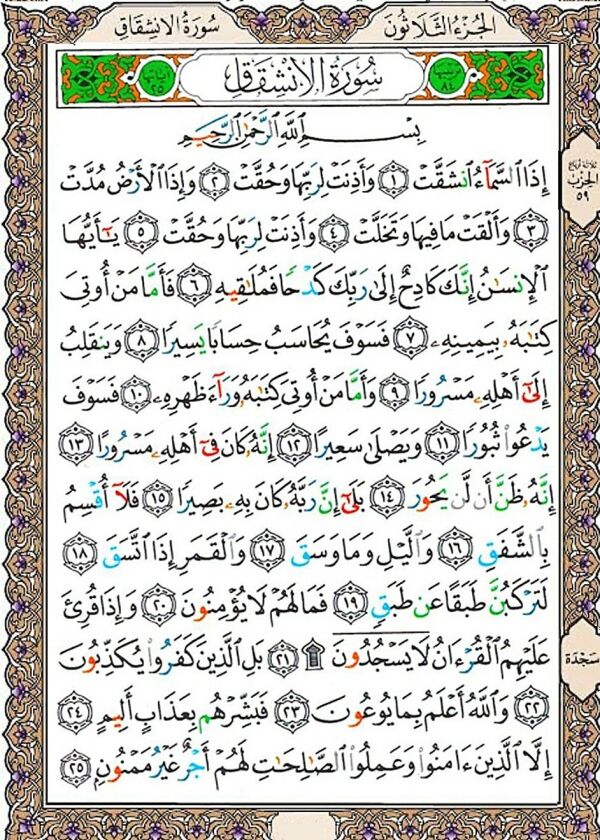 الجزء الثلاثون
سورة الانشقاق
ترتيبها ٨٤
سُورَةُ الِانْشِقَاقِ
آياتها ٢٥
بِسْمِ اللَّهِ الرَّحْمَٰنِ الرَّحِيمِ
إِذَا السَّمَآءُ انشَقَّتْ ١ وَأَذِنَتْ لِرَبِّهَا وَحُقَّتْ ٢ وَإِذَا الْأَرْضُ مُدَّتْ
٣ وَأَلْقَتْ مَا فِيهَا وَتَخَلَّتْ ٤ وَأَذِنَتْ لِرَبِّهَا وَحُقَّتْ ٥ يَٰٓأَيُّهَا
الْإِنسَٰنُ إِنَّكَ كَادِحٌ إِلَىٰ رَبِّكَ كَدْحًا فَمُلَٰقِيهِ ٦ فَأَمَّا مَنْ أُوتِيَ
كِتَٰبَهُۥ بِيَمِينِهِۦ ٧ فَسَوْفَ يُحَاسَبُ حِسَابًا يَسِيرًا ٨ وَيَنقَلِبُ
إِلَىٰٓ أَهْلِهِۦ مَسْرُورًا ٩ وَأَمَّا مَنْ أُوتِيَ كِتَٰبَهُۥ وَرَآءَ ظَهْرِهِۦ ١٠ فَسَوْفَ
يَدْعُوا۟ ثُبُورًا ١١ وَيَصْلَىٰ سَعِيرًا ١٢ إِنَّهُۥ كَانَ فِىٓ أَهْلِهِۦ مَسْرُورًا ١٣
إِنَّهُۥ ظَنَّ أَن لَّن يَحُورَ ١٤ بَلَىٰٓ إِنَّ رَبَّهُۥ كَانَ بِهِۦ بَصِيرًا ١٥ فَلَآ أُقْسِمُ
بِالشَّفَقِ ١٦ وَالَّيْلِ وَمَا وَسَقَ ١٧ وَالْقَمَرِ إِذَا اتَّسَقَ ١٨
لَتَرْكَبُنَّ طَبَقًا عَن طَبَقٍ ١٩ فَمَا لَهُمْ لَا يُؤْمِنُونَ ٢٠ وَإِذَا قُرِئَ
عَلَيْهِمُ الْقُرْءَانُ لَا يَسْجُدُونَ ۩ ٢١ بَلِ الَّذِينَ كَفَرُوا۟ يُكَذِّبُونَ
٢٢ وَاللَّهُ أَعْلَمُ بِمَا يُوعُونَ ٢٣ فَبَشِّرْهُم بِعَذَابٍ أَلِيمٍ ٢٤
إِلَّا الَّذِينَ ءَامَنُوا۟ وَعَمِلُوا۟ الصَّٰلِحَٰتِ لَهُمْ أَجْرٌ غَيْرُ مَمْنُونٍ ٢٥
الحزب
٥٩
سجدة